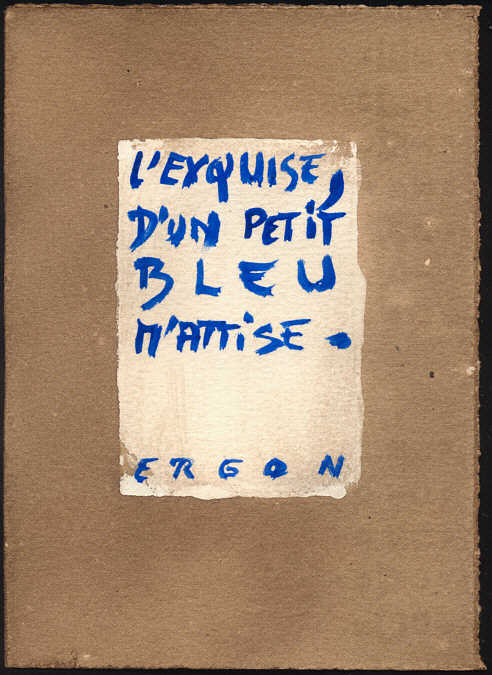 L'EXQUISE,
D'UN PETIT
BLEU
M'ATTISE.
ERGON